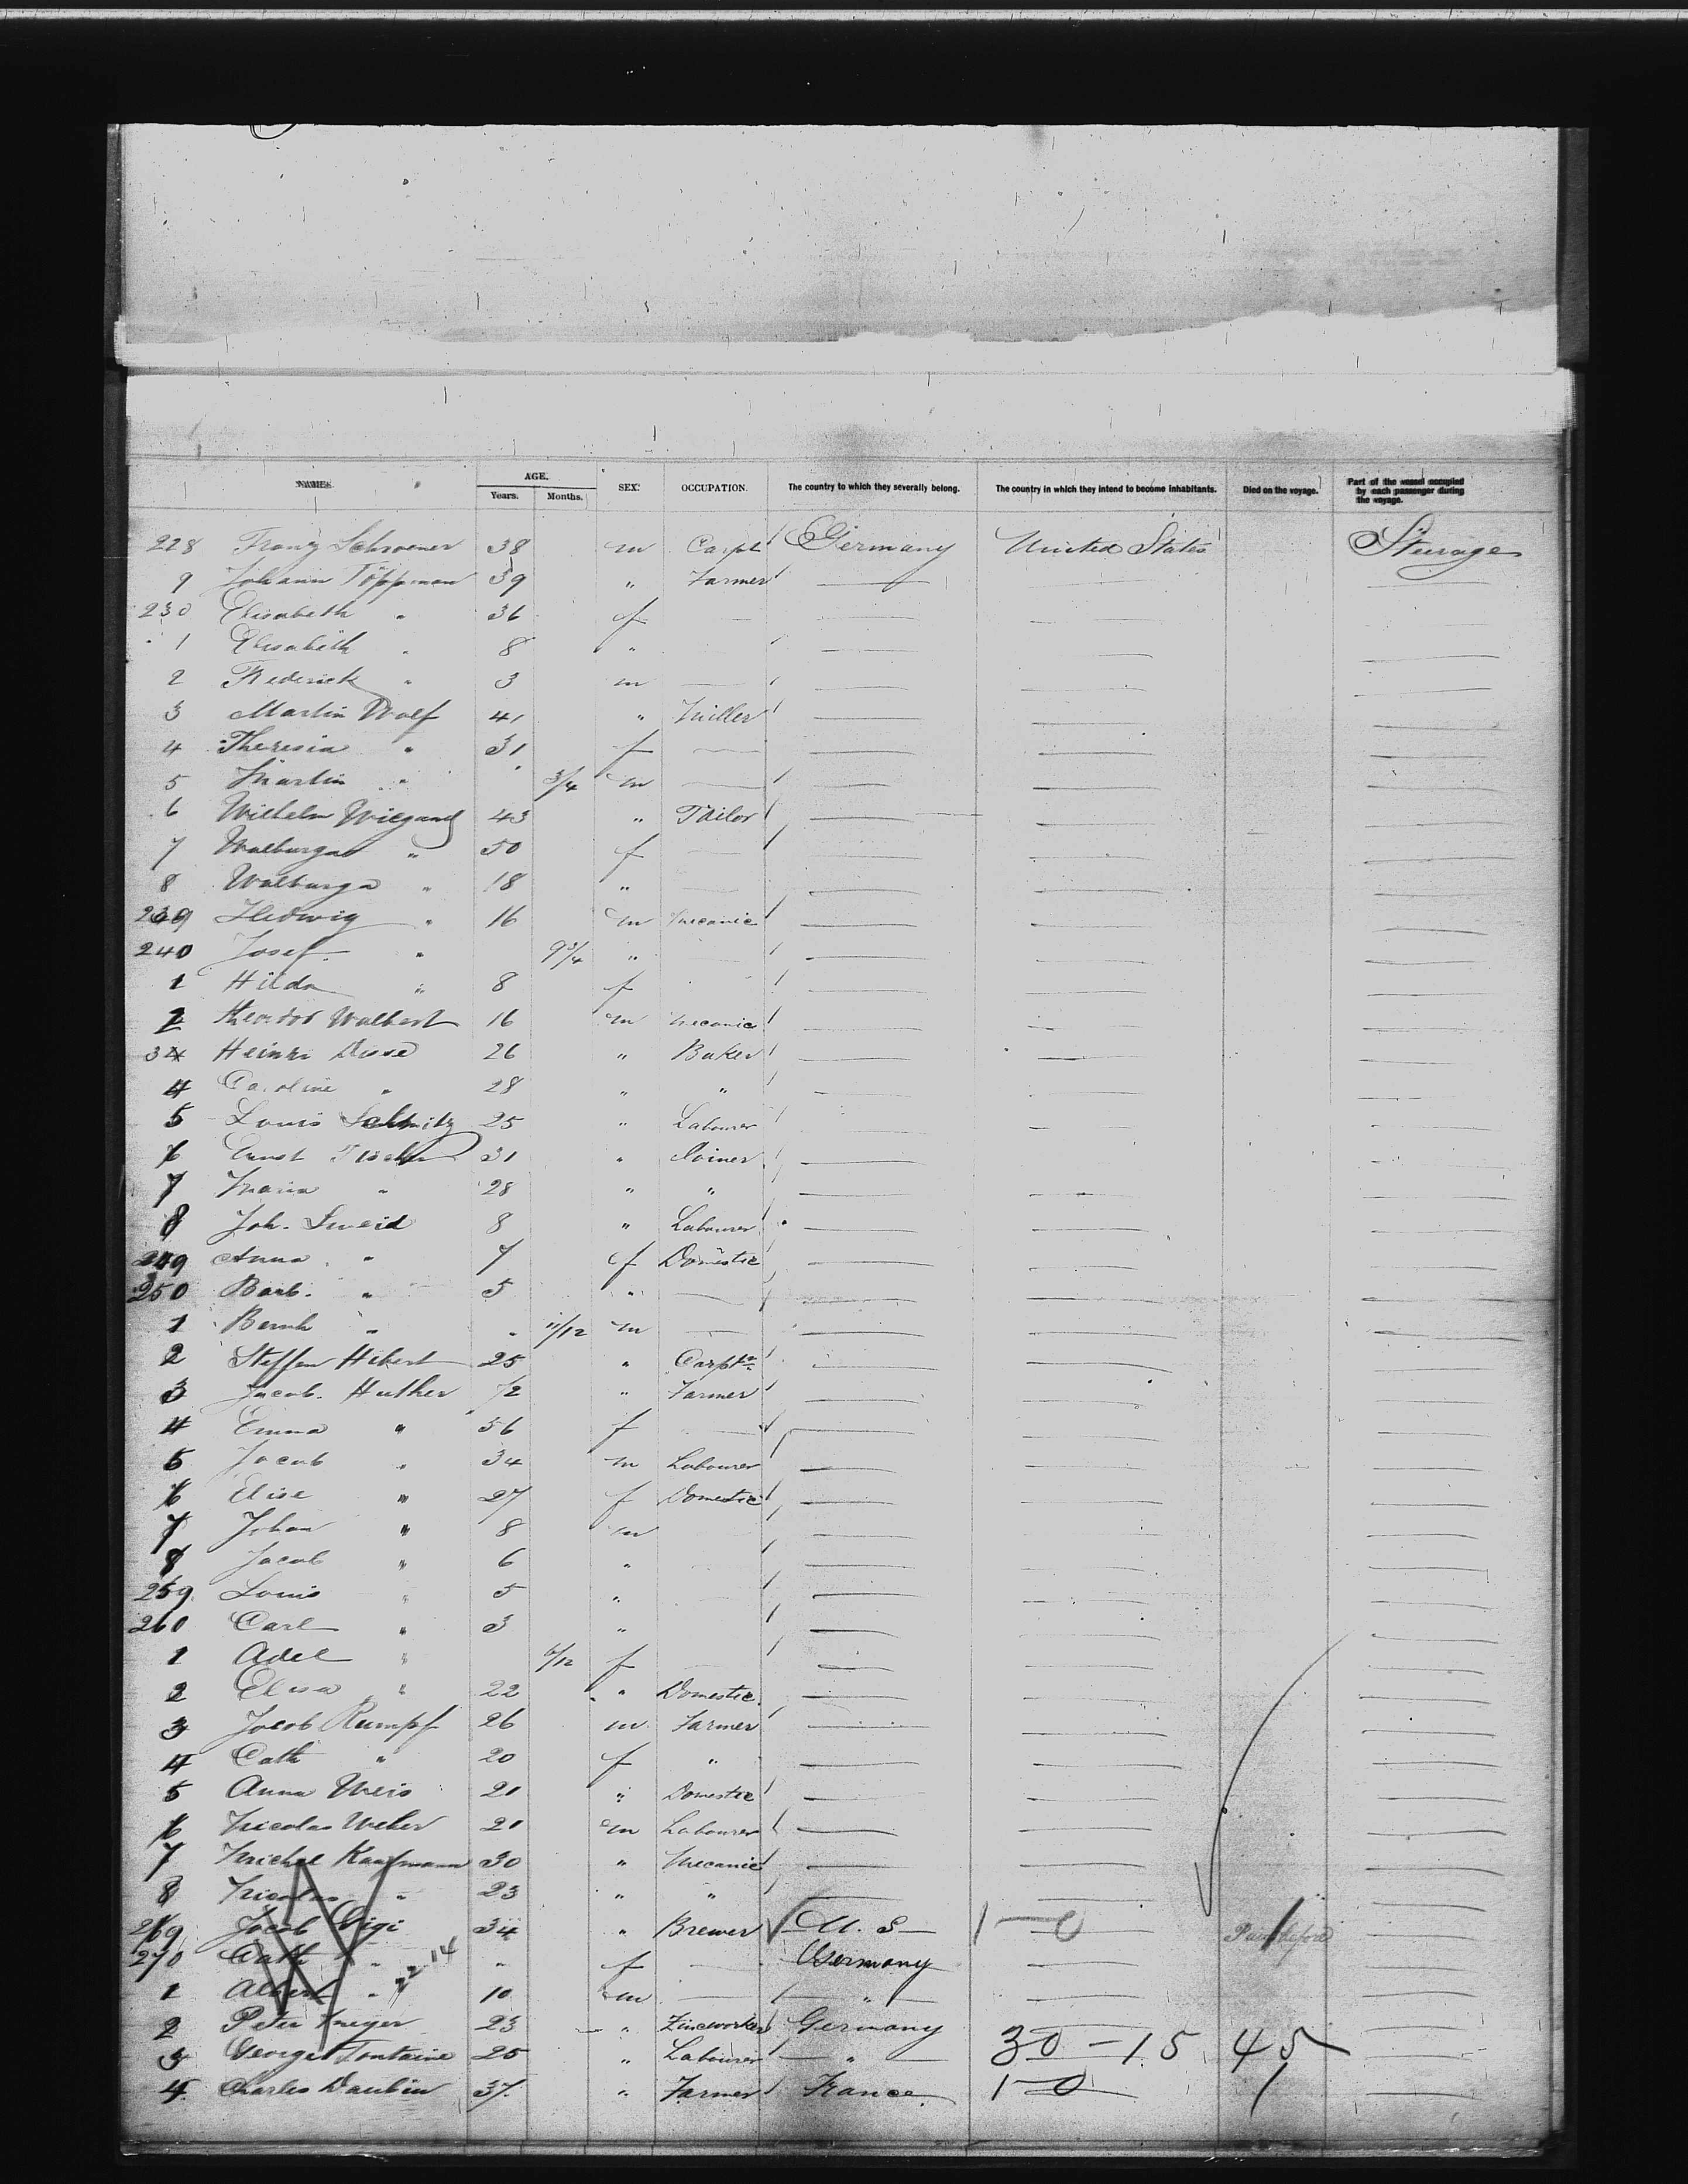 NAMES. AGE. SEX. OCCUPATION. The country to which they severally belong. The country in which they intend to become inhabitants. Died on the voyage. Part of the vessel occupied by each passenger during the voyage.
Years. Months.
228 Franz Schroener 38 m Carpt Germany United States Steerage
9 Johann Töppman 39 " Farmer
230 Elisabeth " 36 f
1 Elisabeth " 8 "
2 Frederick " 3 m
3 Martin Wolf 41 " Miller
4 Theresia " 31 f
5 Martin " 3/4 m
6 Wilhelm Wiegand 43 " Tailor
7 Walburga " 50 f
8 Walburga " 18 "
239 Hedwig " 16 m Mecanic
240 Josef " 9 3/4 "
1 Hilda " 8 f
2 Theodor Walbert 16 m Mecanic
3 Heinri Disse 26 " Baker
4 Caroline " 28 " "
5 Louis Schmitz 25 " Labourer
6 Ernst Fischer 31 " Joiner
7 Maria " 28 " "
8 Joh. Sweid 8 " Labourer
249 Anna " 7 f Domestic
250 Barb. " 5 "
1 Bernh " 11/12 m
2 Steffen Hebert 25 " Carptr
3 Jacob Huther 72 " Farmer
4 Emma " 56 f
5 Jacob " 34 m Labourer
6 Elise " 27 f Domestic
7 Johan " 8 m
8 Jacob " 6 "
259 Louis " 5 "
260 Carl " 3 "
1 Adel " 6/12 f
2 Elisa " 22 " Domestic
3 Jacob Rumpf 26 m Farmer
4 Cath " 20 f "
5 Anna Weis 21 " Domestic
6 Nicolas Weber 20 m Labourer
7 Michel Kaufmann 30 " Mecanic
8 Nicolas " 23 " "
269 Jacob Gigi 34 " Brewer U. S 1 0
270 Cath " " f Germany
1 Albert " 10 m "
2 Peter Kreyer 23 " Zincworker Germany
3 George Fontaine 25 " Labourer " 30 - 15 45
4 Charles Daubin 37 " Farmer France 1 0 1